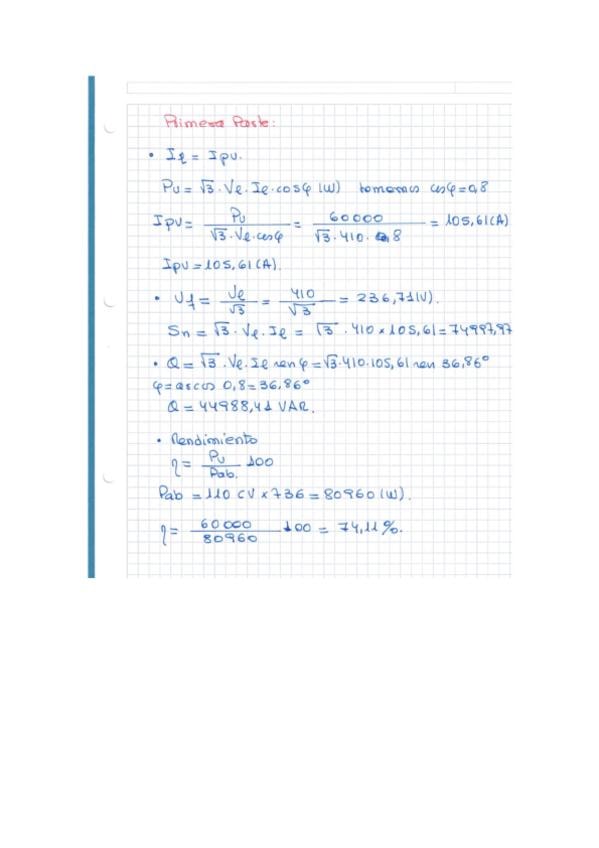 Primera Parte:
• Iℓ = Ipu.
Pu = √3 · Ve · Ie · cosφ (W) tomamos cosφ = 0,8
Ipu = Pu / √3 · Ve · cosφ = 60000 / √3 · 410 · 0,8 = 105,61 (A)
Ipu = 105,61 (A).
• Uf = Ue / √3 = 410 / √3 = 236,71 (V).
Sn = √3 · Ve · Ie = √3 · 410 × 105,61 = 74997,97
• Q = √3 · Ve · Ie sen φ = √3 · 410 · 105,61 sen 36,86°
φ = arcos 0,8 = 36,86°
Q = 44988,41 VAR.
• Rendimiento
η = Pu / Pab. 100
Pab = 110 CV × 736 = 80960 (W).
η = 60000 / 80960 100 = 74,11%.